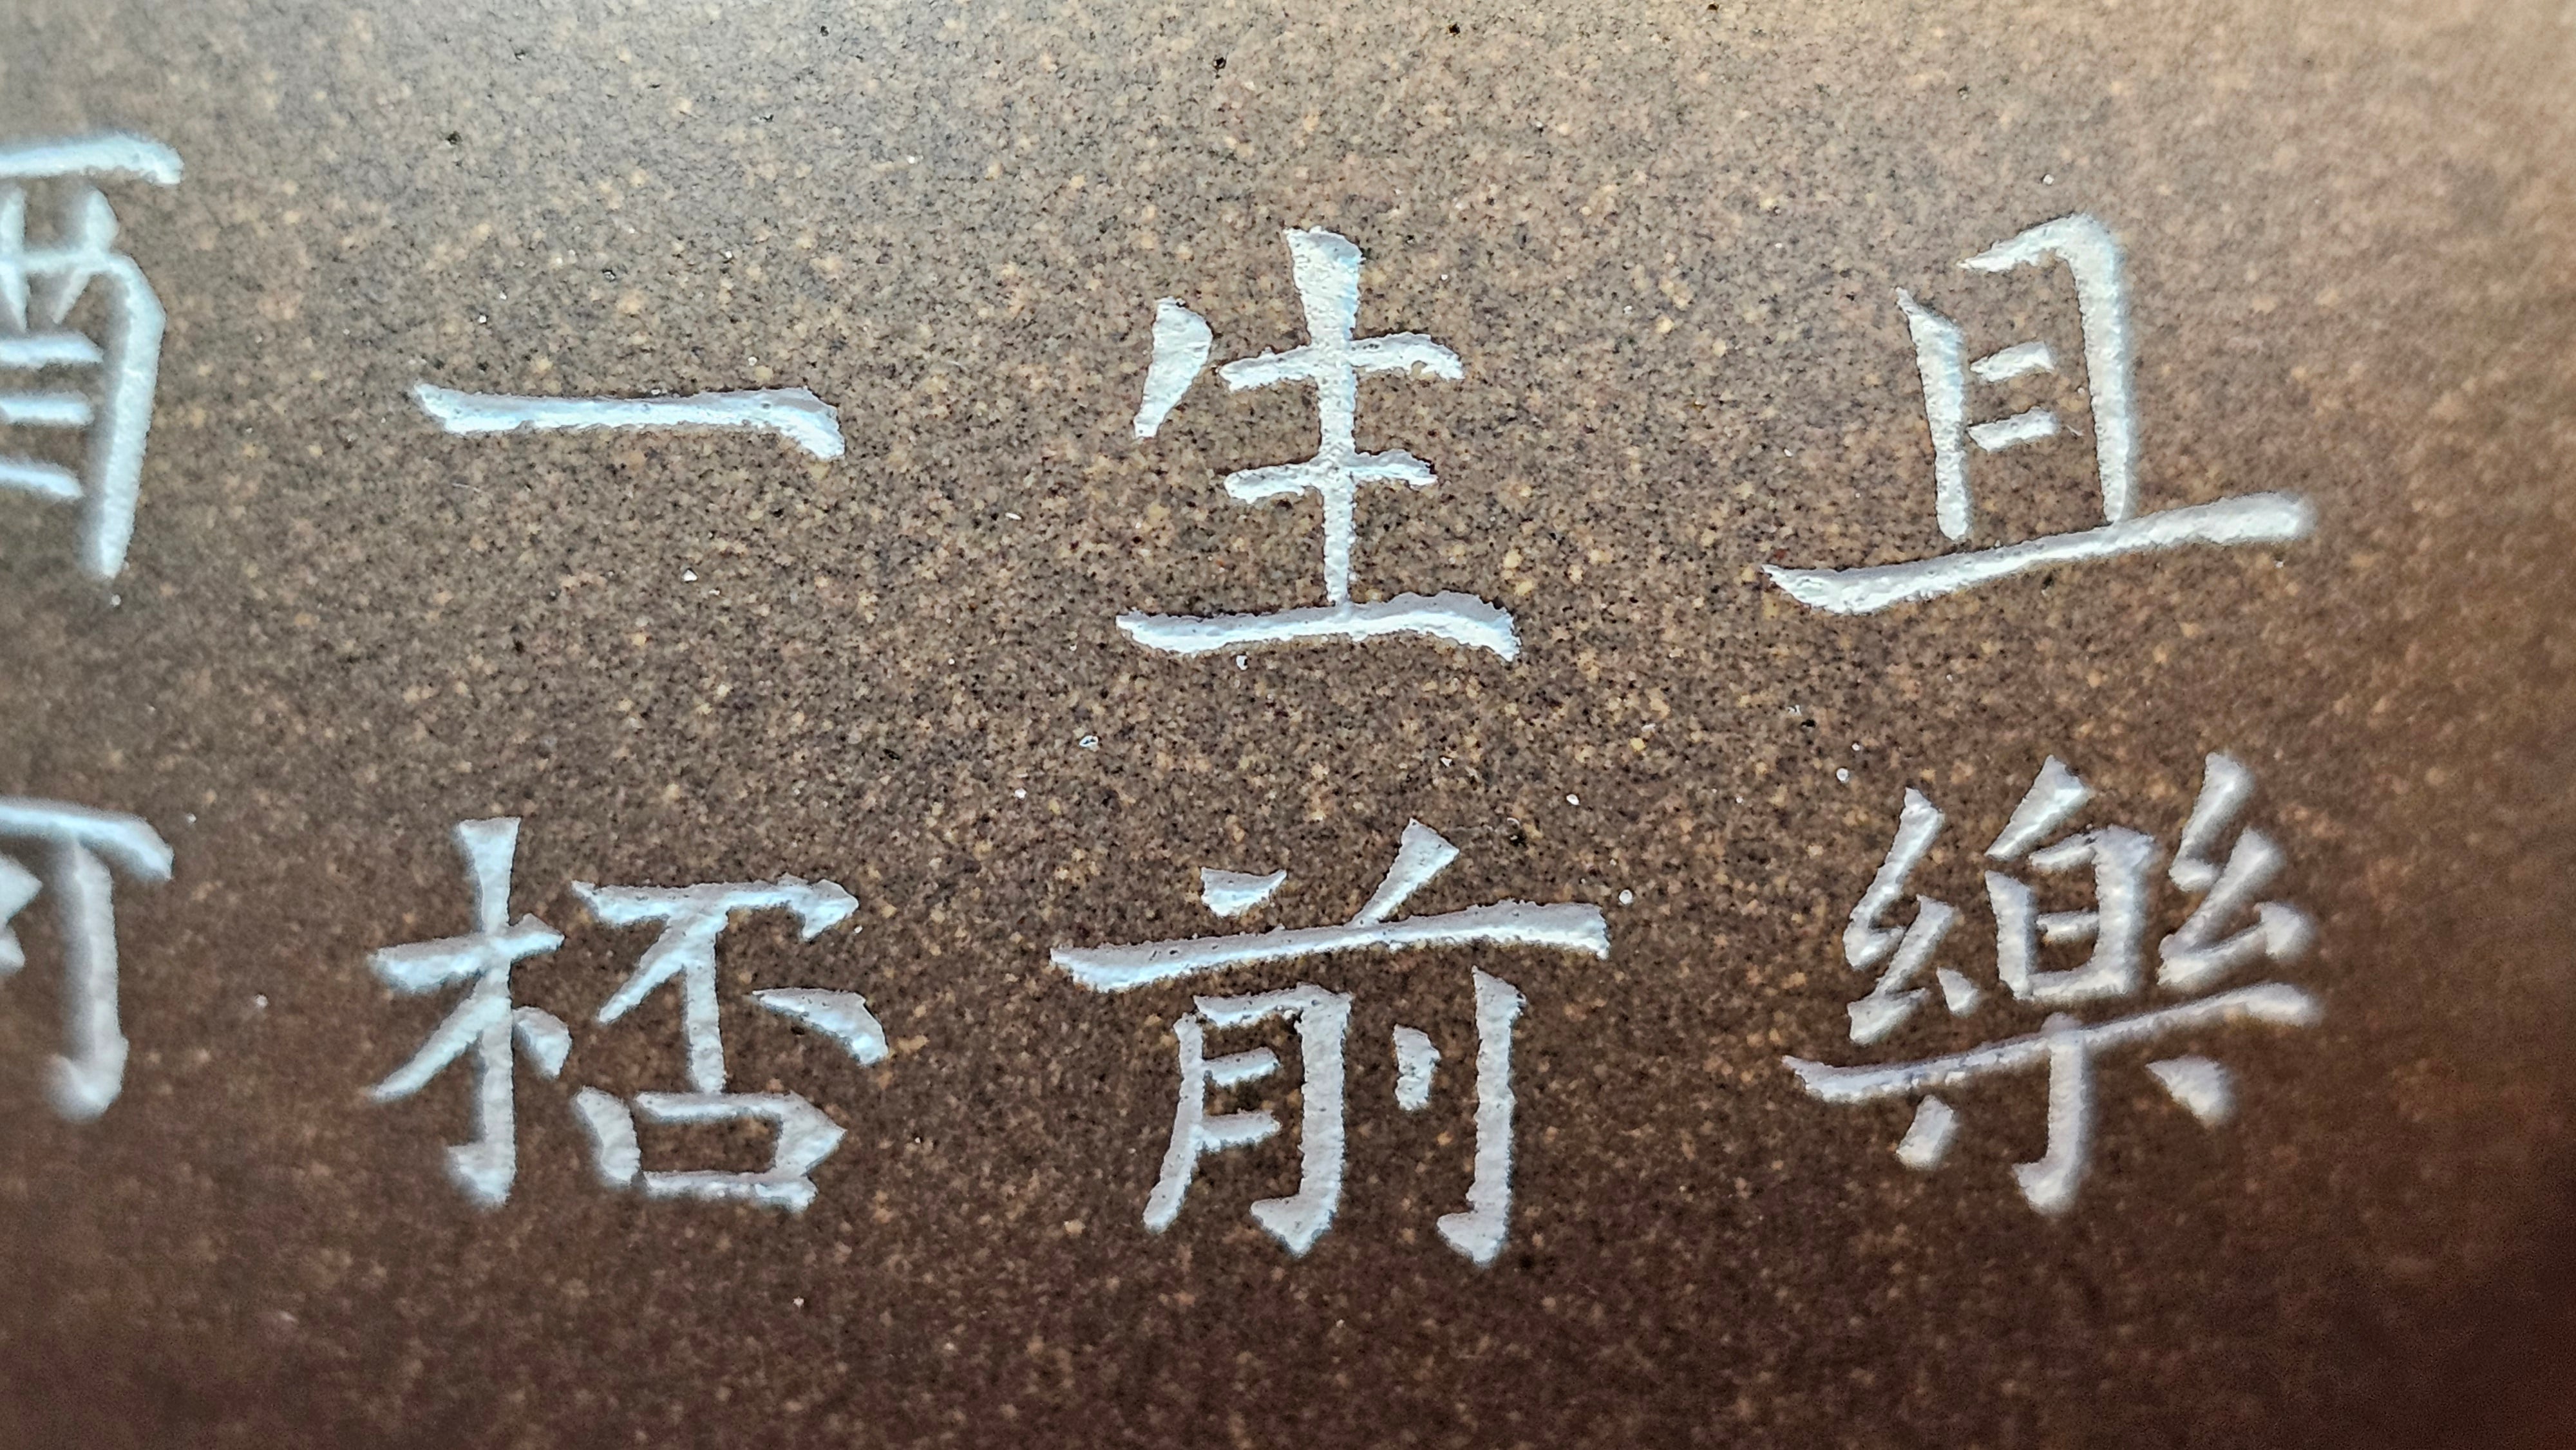 且樂
生前
一桮